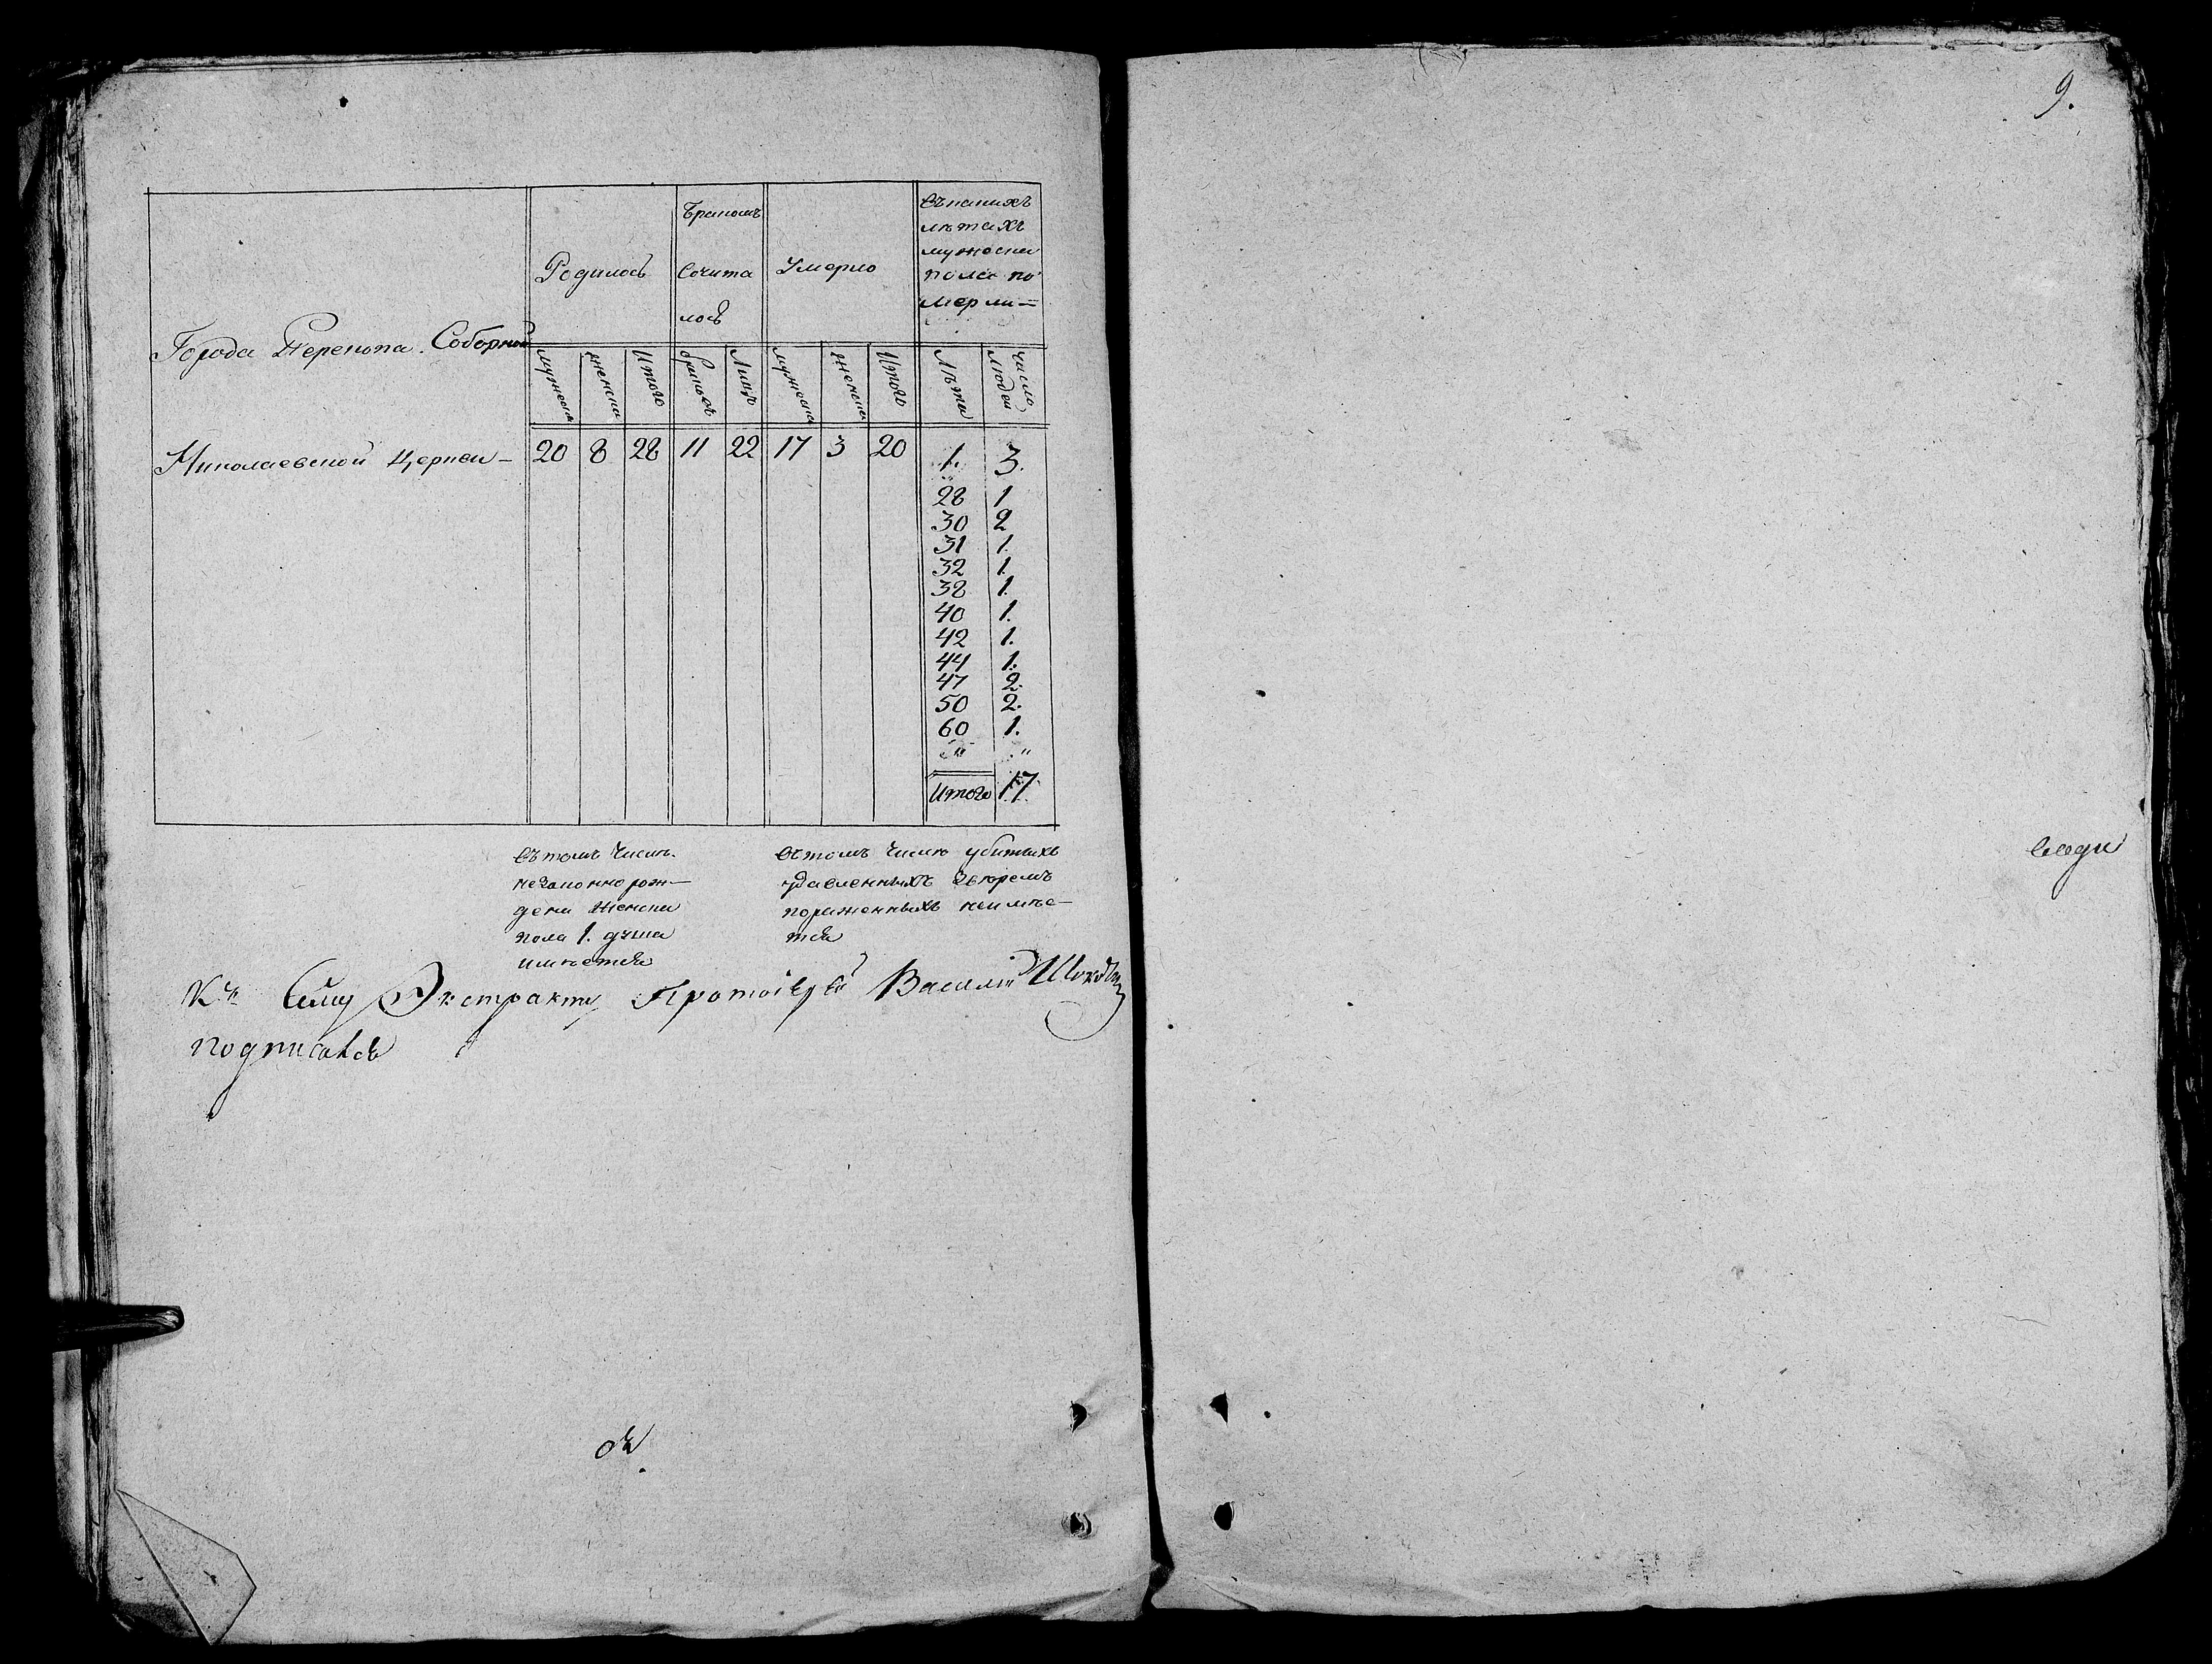 9.
Родилось
Бракомъ
Сочита
лось
Умерло
Въ какихъ
лѣтахъ
мужеска
пола по
мерли =
Города Перекопа. Соборной
мужеска
женска
Итого
браков
Лицъ
мужеска
женска
Итого
Лѣта
число
людей
Николаевской Церкви —
20 8 28 11 22 17 3 20
1. 3.
28 1
30 2
31 1.
32 1.
38 1.
40 1.
42 1.
44 1.
47 2.
50 2.
60 1.
" "
Итого 17
въ томъ числѣ
незаконно рож—
дена Женска
пола 1. душа
имѣется
Въ томъ числѣ убитыхъ
удавленныхъ звѣремъ
пораженныхъ неимѣе—
тся
Къ Сему Экстракту Протоіерей Василій
подписался